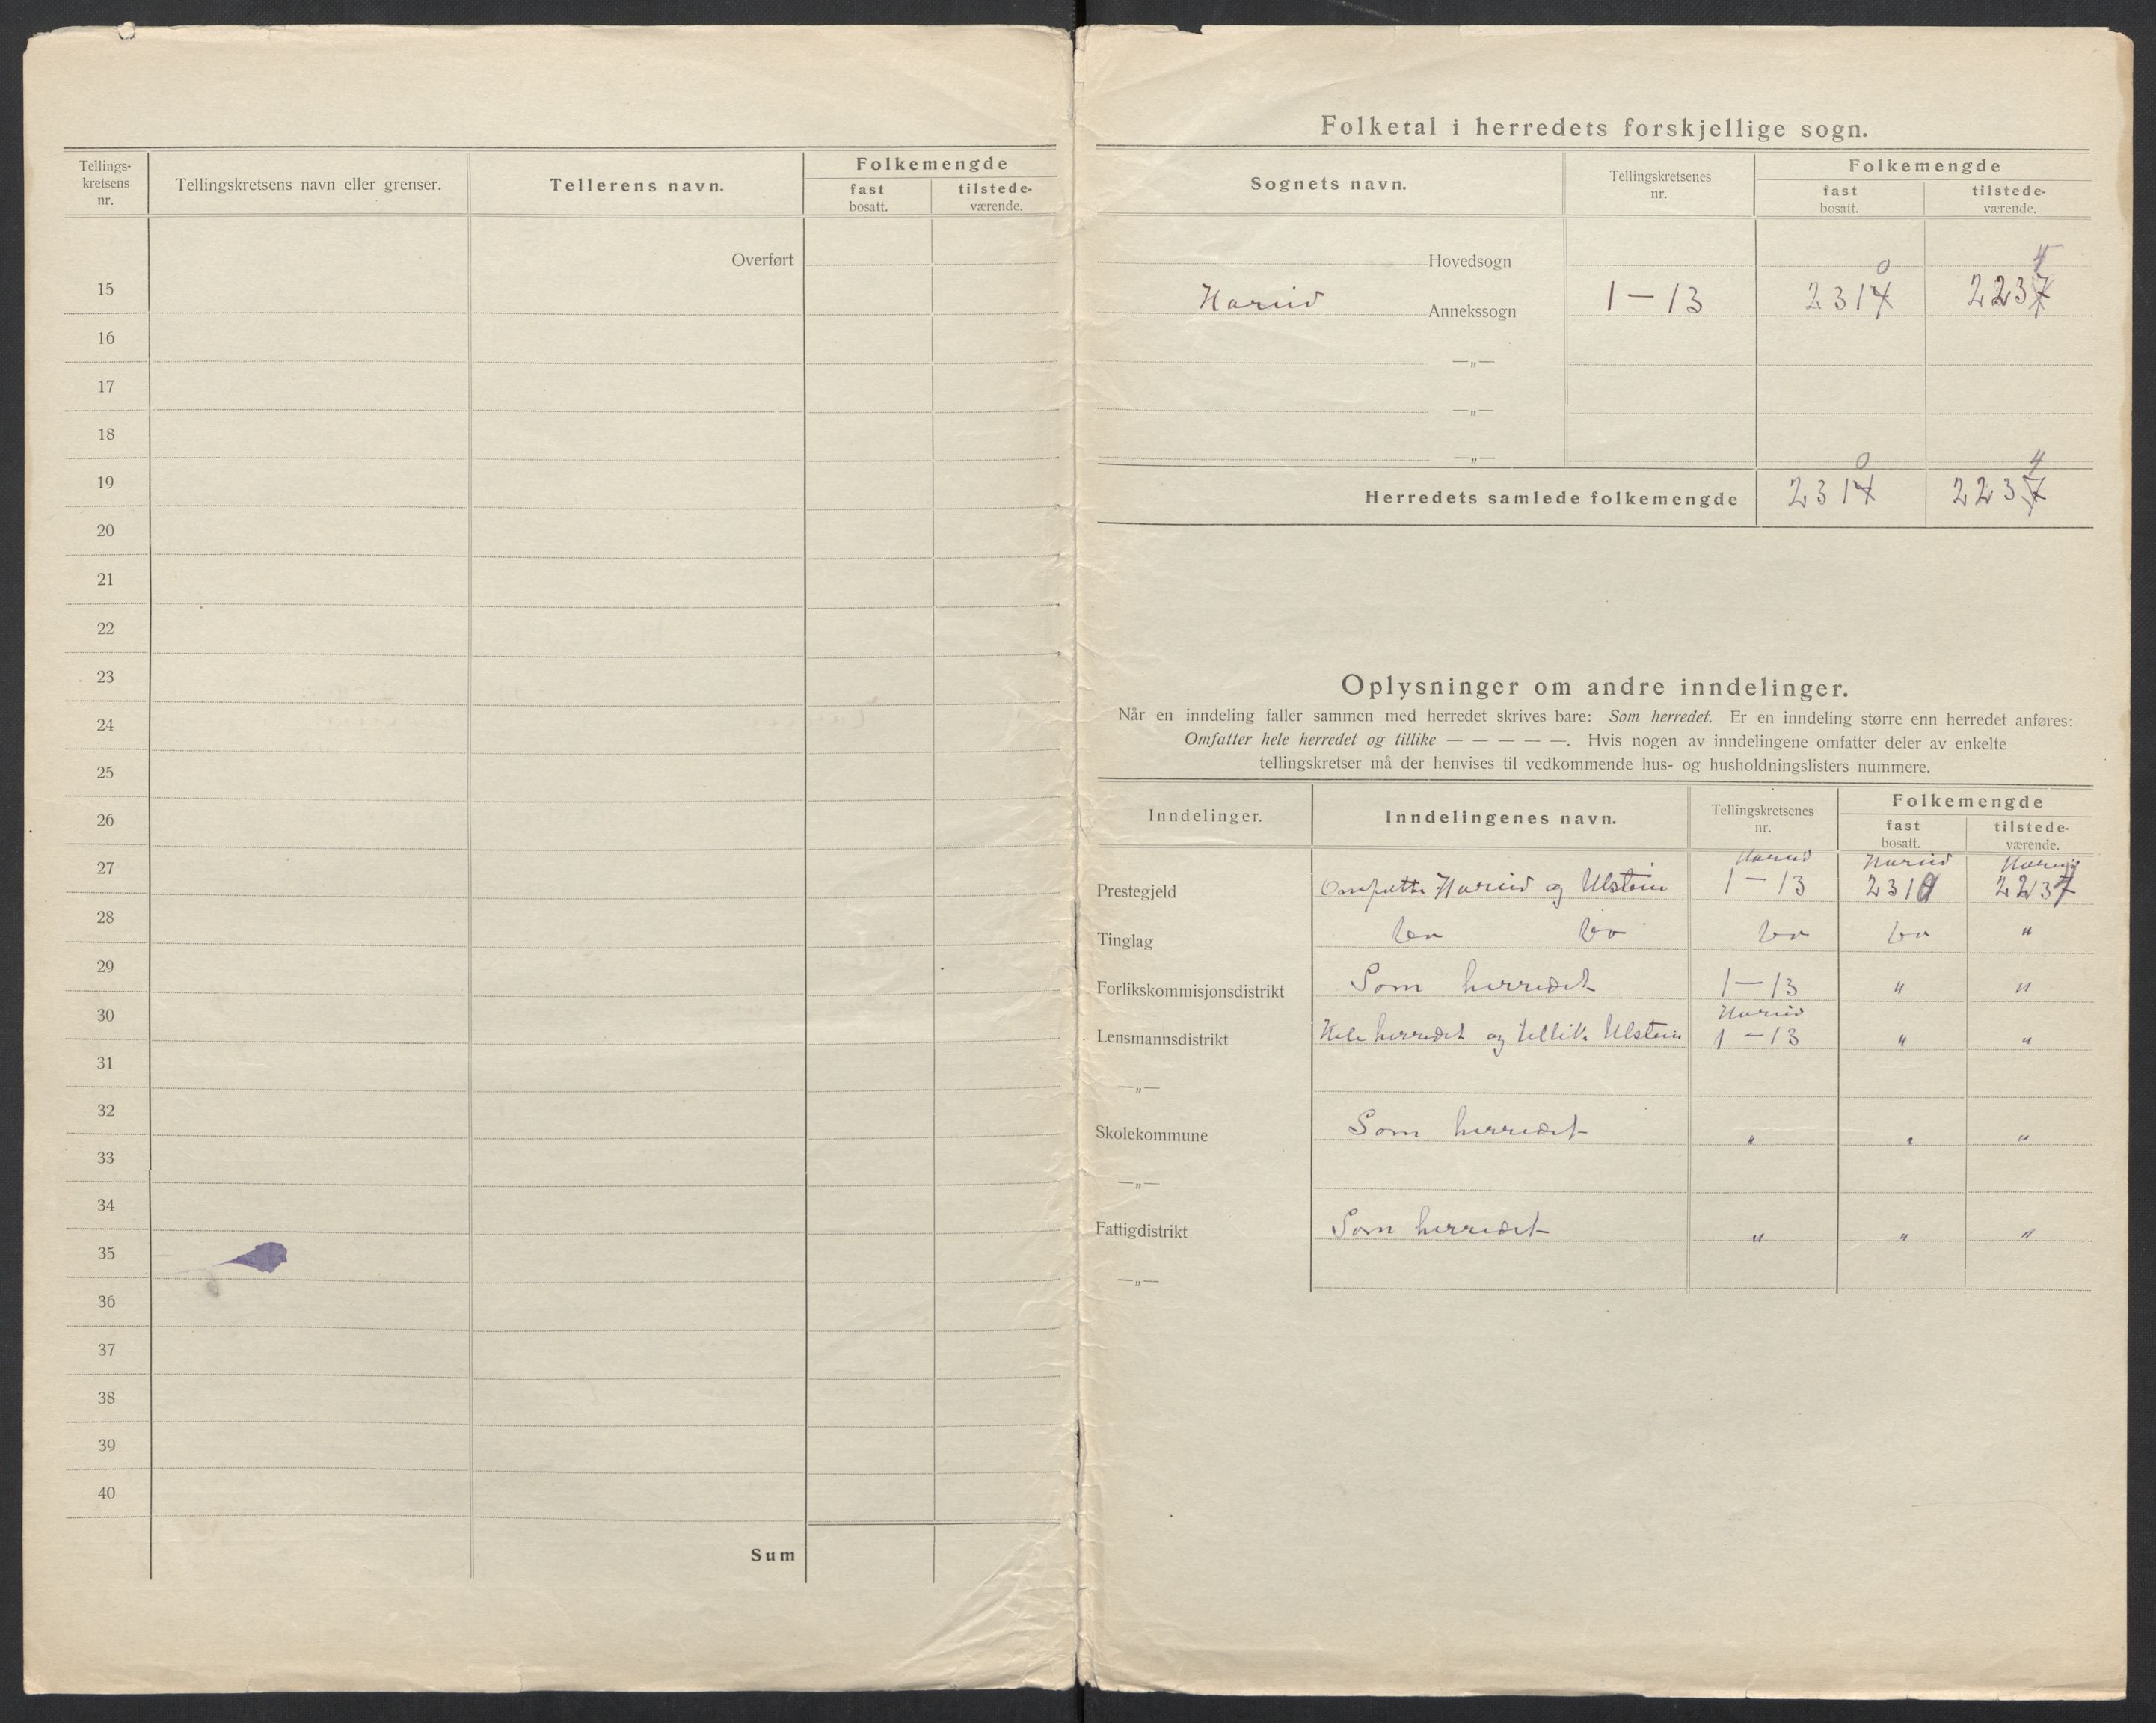 Tellings-
kretsens
nr.
Tellingskretsens navn eller grenser.
Tellerens navn.
Folkemengde
fast
bosatt.
tilstede-
værende.
Overført
15
16
17
18
19
20
21
22
23
24
25
26
27
28
29
30
31
32
33
34
35
36
37
38
39
40
Sum
Folketal i herredets forskjellige sogn.
Sognets navn.
Tellingskretsenes
nr.
Folkemengde
fast
bosatt.
tilstede-
værende.
Hovedsogn
0 4
Hareid Annekssogn 1-13 2314 2237
—„—
—„—
—„—
0 4
Herredets samlede folkemengde 2314 2237
Oplysninger om andre inndelinger.
Når en inndeling faller sammen med herredet skrives bare: Som herredet. Er en inndeling større enn herredet anføres:
Omfatter hele herredet og tillike — — — — —. Hvis nogen av inndelingene omfatter deler av enkelte
tellingskretser må der henvises til vedkommende hus- og husholdningslisters nummere.
Inndelinger.
Inndelingenes navn.
Tellingskretsenes
nr.
Folkemengde
fast
bosatt.
tilstede-
værende.
Hareid Hareid Hareid
Prestegjeld Omfatte Hareid og Ulstein 1-13 2310 2237
Tinglag do do do do "
Forlikskommisjonsdistrikt Som herredet 1-13 " "
Hareid
Lensmannsdistrikt Hele herredet og tillike Ulstein 1-13 " "
—„—
Skolekommune Som herredet " " "
—„—
Fattigdistrikt Som herredet " " "
—„—